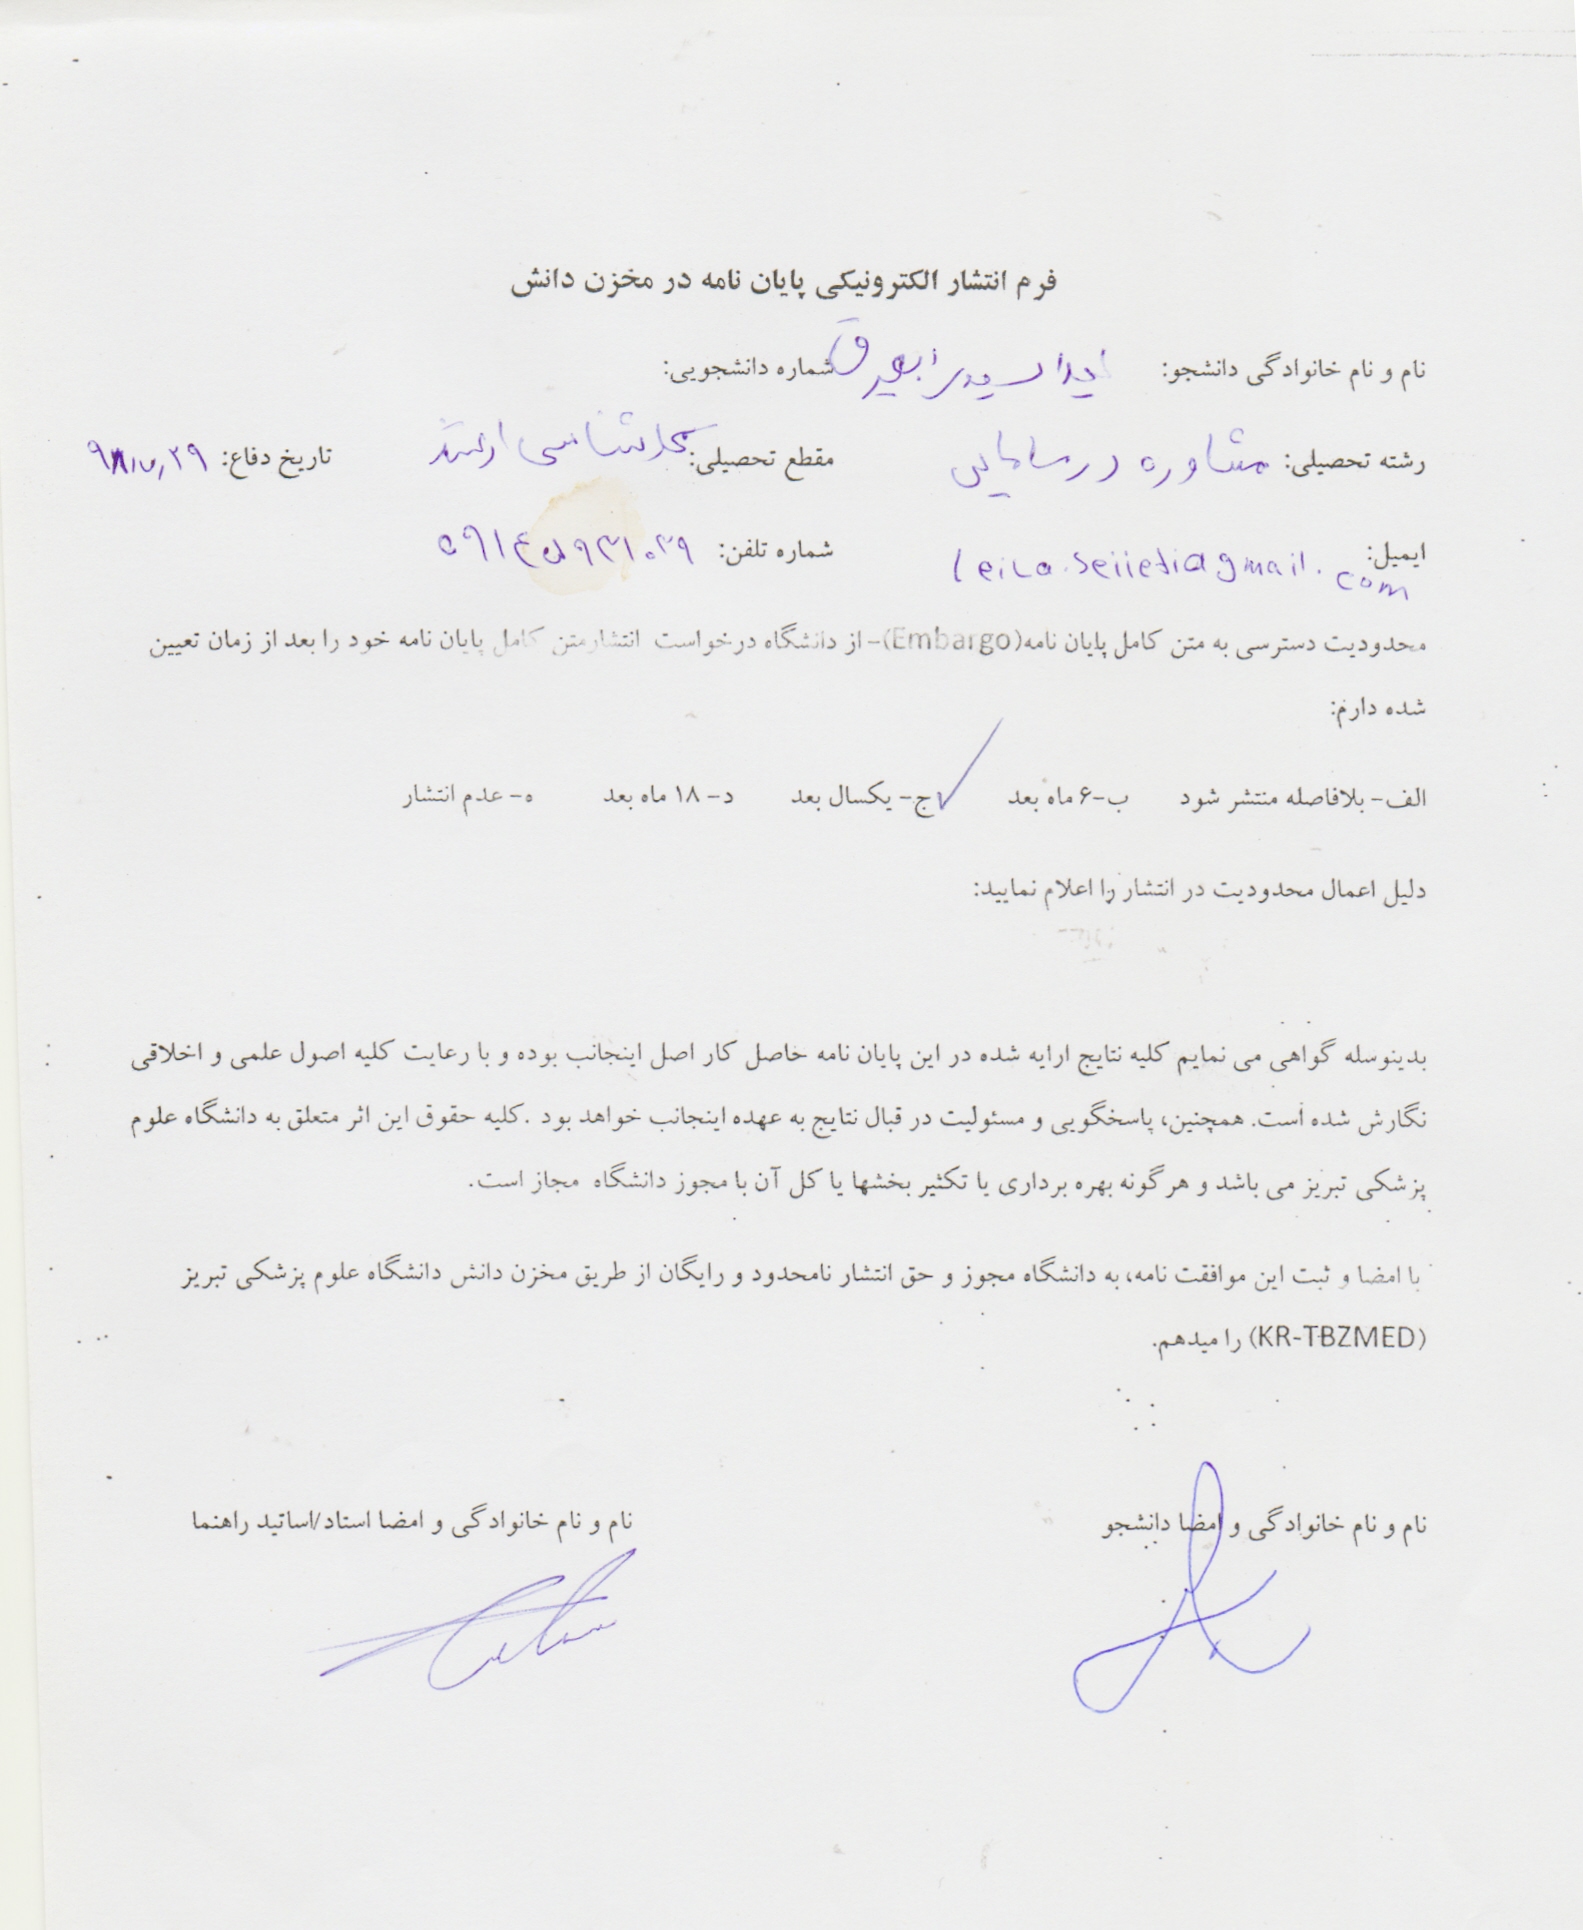 فرم انتشار الکترونیکی پایان نامه در مخزن دانش
نام و نام خانوادگی دانشجو: شماره دانشجویی:
رشته تحصیلی: مشاوره در مامایی مقطع تحصیلی: کارشناسی ارشد تاریخ دفاع: ۹۸/۷/۲۹
ایمیل: leila.seiiedi@gmail.com شماره تلفن: ۰۹۱۴۵۹۳۱۰۲۹
محدودیت دسترسی به متن کامل پایان نامه(Embargo)- از دانشگاه درخواست انتشارمتن کامل پایان نامه خود را بعد از زمان تعیین
شده دارم:
الف- بلافاصله منتشر شود ب-۶ ماه بعد ج- یکسال بعد د- ۱۸ ماه بعد ه- عدم انتشار
دلیل اعمال محدودیت در انتشار را اعلام نمایید:
بدینوسله گواهی می نمایم کلیه نتایج ارایه شده در این پایان نامه حاصل کار اصل اینجانب بوده و با رعایت کلیه اصول علمی و اخلاقی
نگارش شده است. همچنین، پاسخگویی و مسئولیت در قبال نتایج به عهده اینجانب خواهد بود .کلیه حقوق این اثر متعلق به دانشگاه علوم
پزشکی تبریز می باشد و هرگونه بهره برداری یا تکثیر بخشها یا کل آن با مجوز دانشگاه مجاز است.
با امضا و ثبت این موافقت نامه، به دانشگاه مجوز و حق انتشار نامحدود و رایگان از طریق مخزن دانش دانشگاه علوم پزشکی تبریز
(KR-TBZMED) را میدهم.
نام و نام خانوادگی و امضا دانشجو نام و نام خانوادگی و امضا استاد/اساتید راهنما